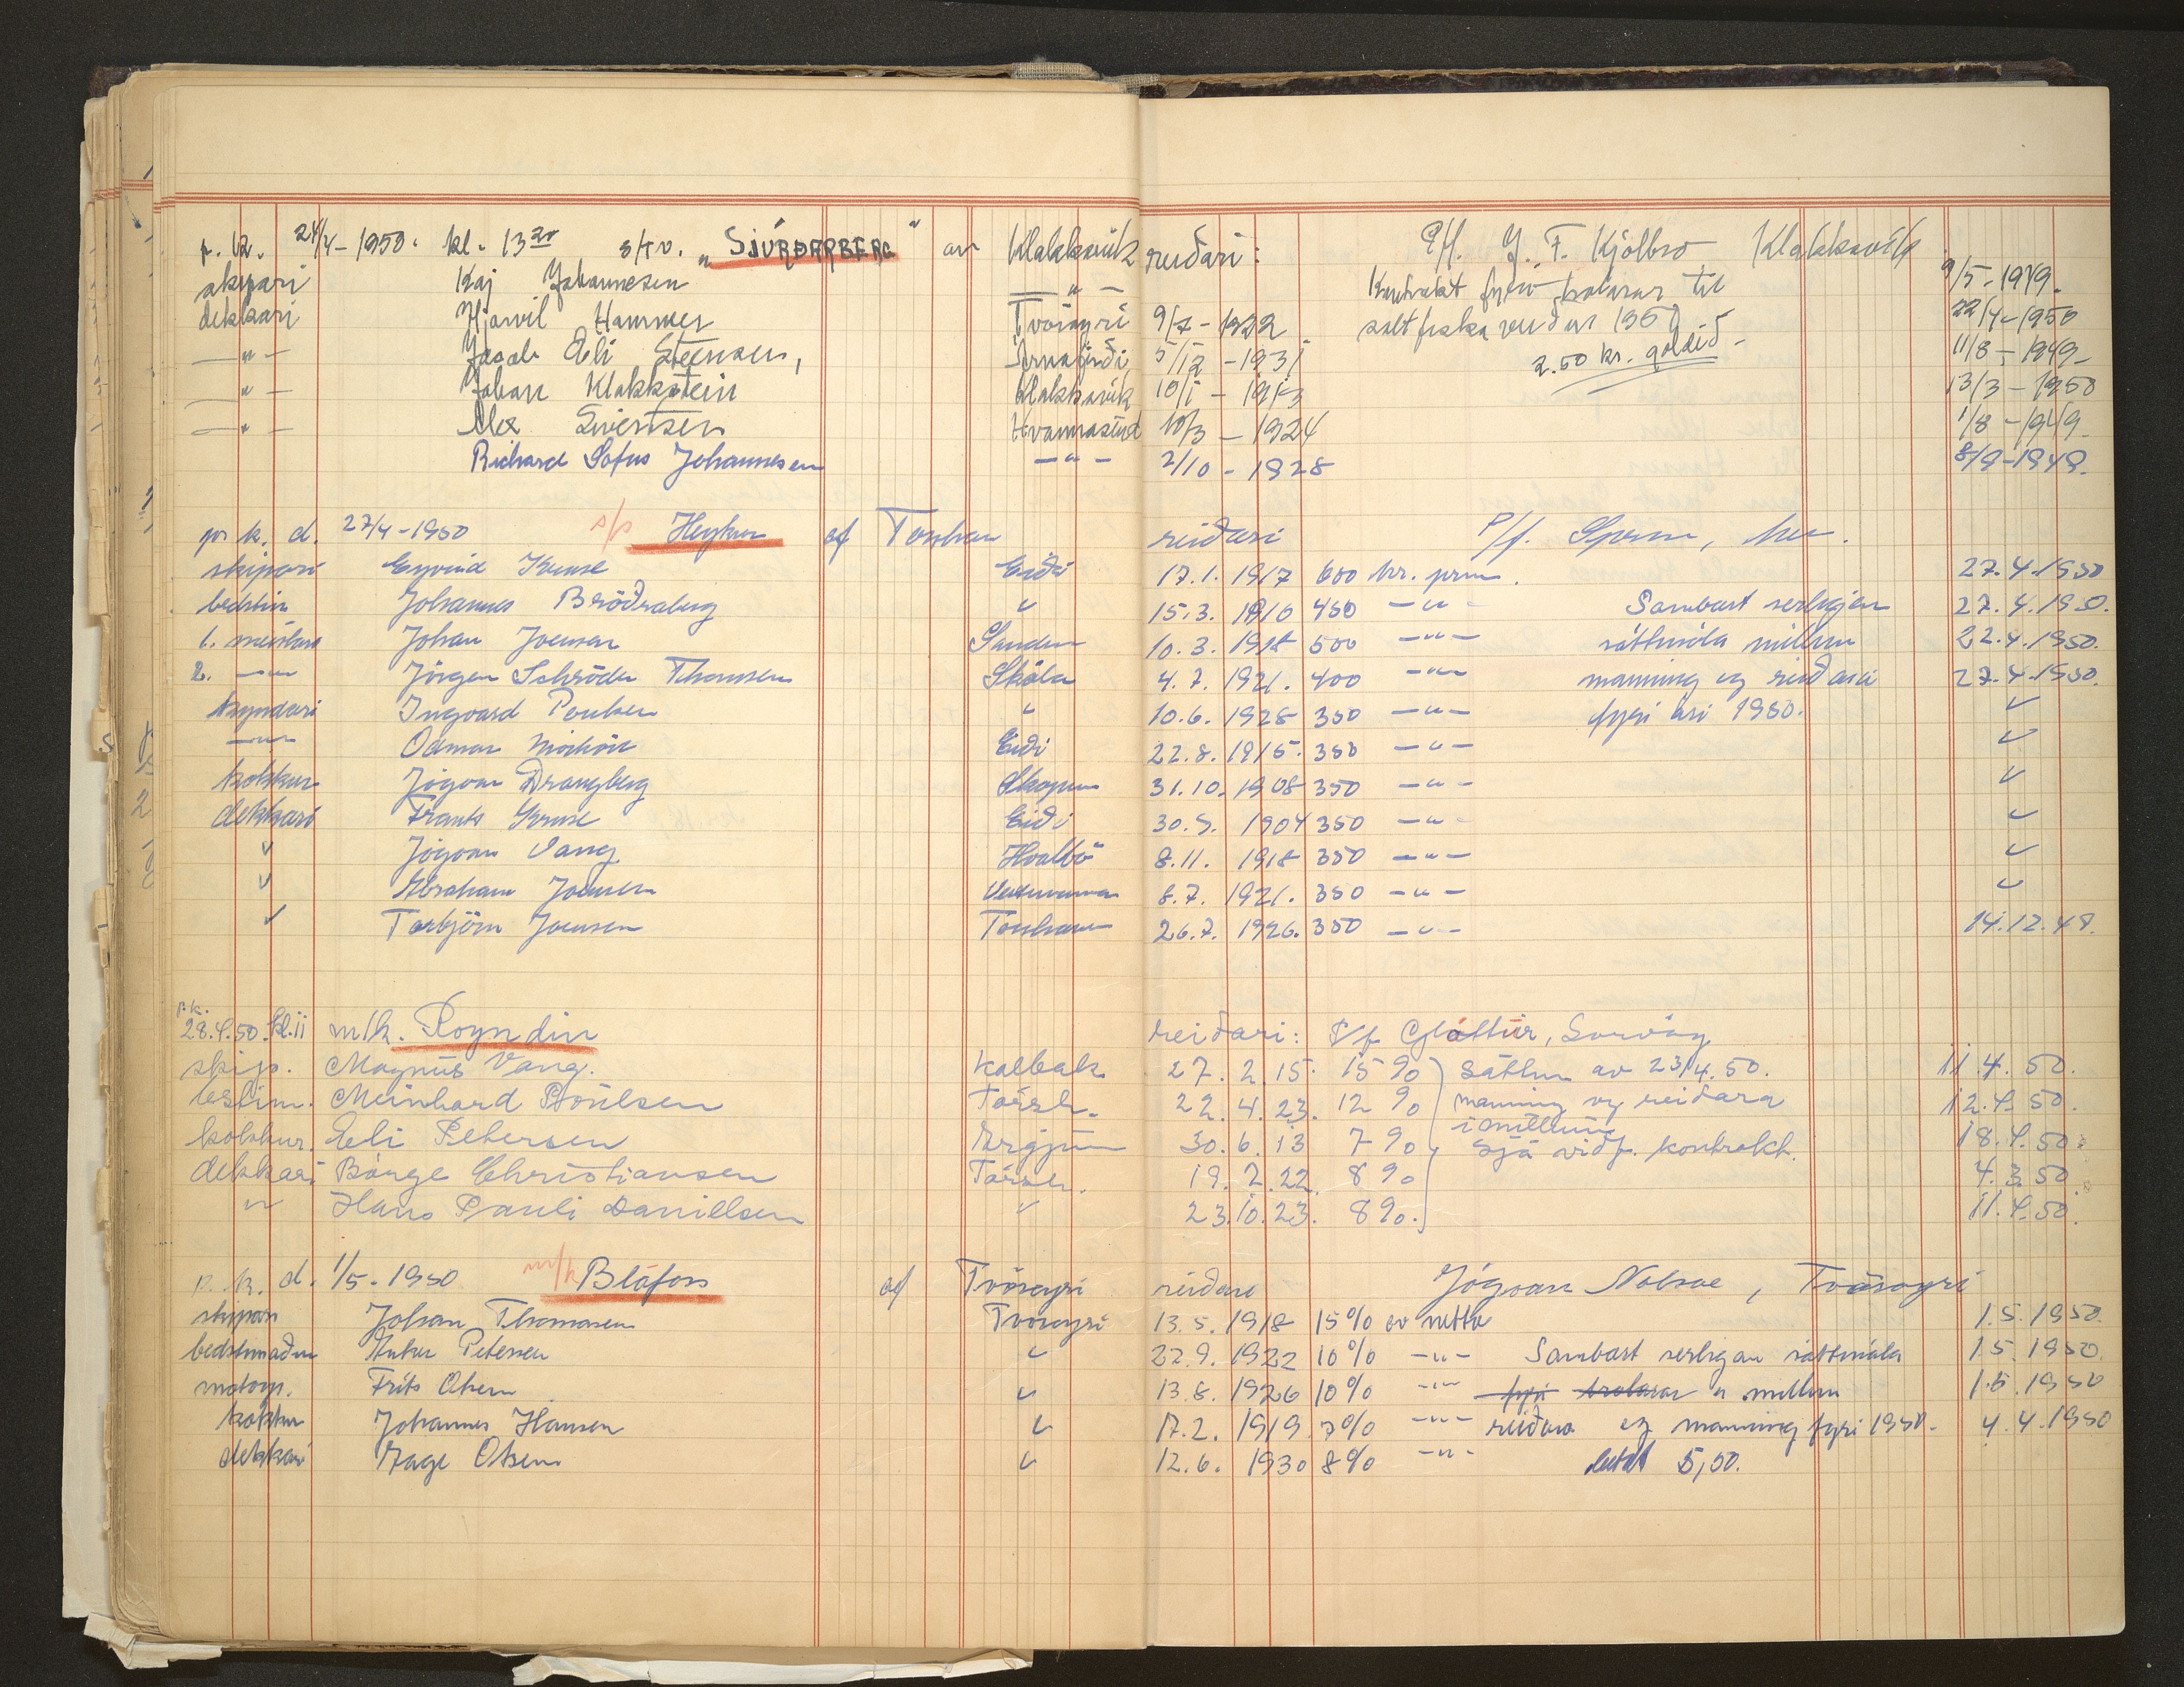 p. k. 24/4 - 1950. kl. 13 20 s/tv. "SJÚRÐARBERG" av Klakksvík reiðari: P/f. J. F. Kjølbro Klakksvík
skipari Kaj Johannesen — " — Kontrakt fyri trolarar til 9/5 - 1949.
dekkari Hjarvil Hammer Tvöroyri 9/7 - 1922 saltfiska veiður 1950 22/4 - 1950
— " — Jacob Eli Steensen, 5/12 - 1931 2.50 kr. goldið - 11/8 - 1949
— " — Johan Klakkstein Klakksvík 10/1 - 1913 13/3 - 1950
— " — Alex Sivertsen Hvannasund 10/3 - 1924 1/8 - 1949
Richard Sofus Johannesen — " — 2/10 - 1928 8/9 - 1949.
p k. d. 27/4 - 1950 s/s Heykur af Torshavn reiðari P/f.
skipari Eyvind Kruse Eiði 17.1.1917 600 kr. prm. 27.4.1950
bedstim Johannes Bröðraberg " 15.3.1910 450 — " — Sambært serligan 27.4.1950.
1. meistari Johan Joensen Sandur 10.3.1918 500 — " — sáttmála millum 22.4.1950.
2. — " — Jörgen Schröder Thomsen Skála 4.7.1921. 400 — " — manning og reiðara 27.4.1950.
kyndari Ingvard Poulsen " 10.6.1928 350 — " — fyri árið 1950. "
— " — Odmar Eiði 22.8.1915. 350 — " — "
kokkur Jógvan Drangberg Skopun 31.10.1908 350 — " — "
dekkari Frants Kruse Eiði 30.5.1904 350 — " — "
" Jógvan Vang Hvalbö 8.11.1918 350 — " — "
" Abraham Joensen Vestmanna 8.7.1921. 350 — " — "
" Torbjörn Joensen Torshavn 26.7.1926. 350 — " — 14.12.48.
p.k.
28.4.50. kl. 11 m/k. Royndin reiðari: P/f Gláttur, Sorvág
skip. Magnus Vang. Kalbak 27.2.15. 15 % Sáttm. av 23/4.50. 11.4.50.
bestim. Meinhard Poulsen Tórsh. 22.4.23. 12 % manning og reiðara 12.4.50.
ímillum
kokkur. Eli Petersen 30.6.13 7 % sjá viðf. kontrakt. 18.4.50.
dekkari Börge Christiansen Tórsh. 19.2.22. 8 % 4.3.50
" Hans Pauli Danielsen " 23.10.23. 8 %. 11.4.50.
p. k. d. 1/5 - 1950 m/k Bláfoss af Tvöroyri reiðari Jógvan Nolsøe, Tvöroyri
skipari Johan Thomasen Tvöroyri 13.5.1918 15% av netto 1.5.1950.
bedstimaður Anker Petersen " 22.9.1922 10% — " — Sambært serligan sáttmála 1.5.1950.
motorp. Frits Olsen " 13.8.1926 10% — " — fyri trolarar millum 1.5.1950
kokkur Johannes Hansen " 17.2.1919 7% — " — reiðara og manning fyri 1950. 4.4.1950
dekkari Aage Olsen " 12.6.1930 8% — " — betalt 5,50.